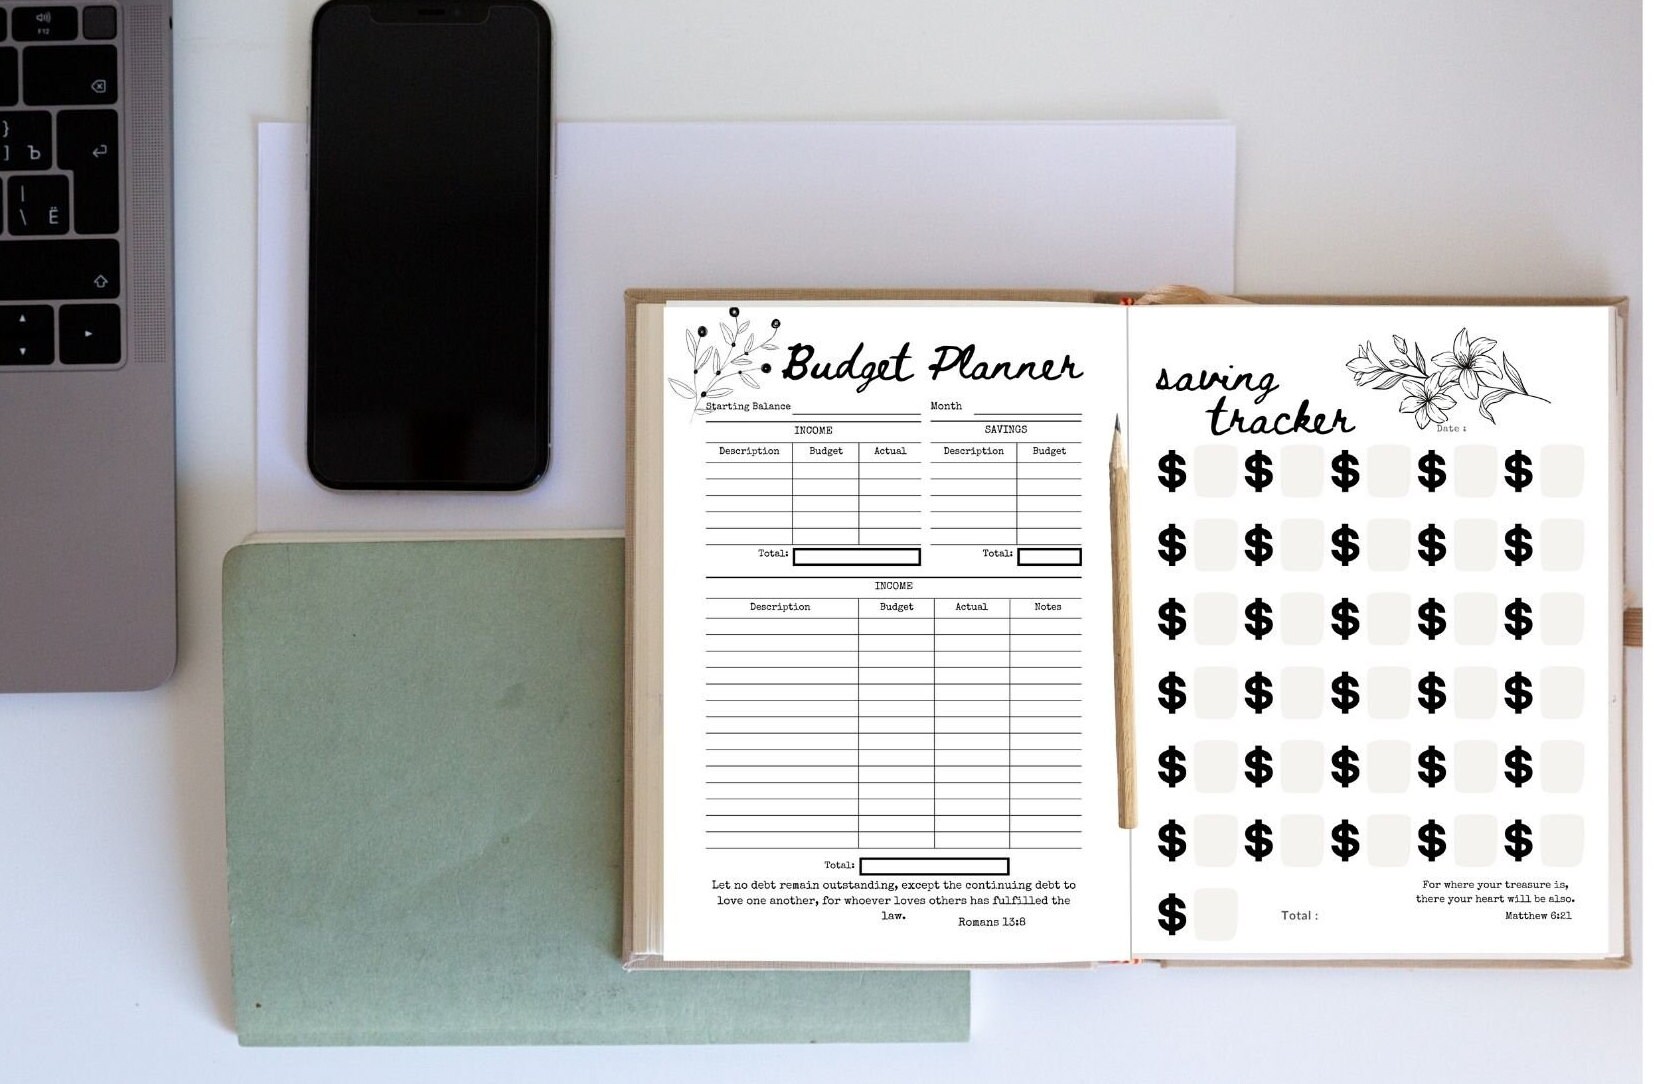 F12
}
] Ъ
|
\ Ё
Budget Planner
Starting Balance
Month
INCOME
SAVINGS
Description Budget Actual
Description Budget
Total:
Total:
INCOME
Description Budget Actual Notes
Total:
Let no debt remain outstanding, except the continuing debt to
love one another, for whoever loves others has fulfilled the
law.
Romans 13:8
saving
tracker
Date :
$ $ $ $ $
$ $ $ $ $
$ $ $ $ $
$ $ $ $ $
$ $ $ $ $
$ $ $ $ $
$
Total :
For where your treasure is,
there your heart will be also.
Matthew 6:21